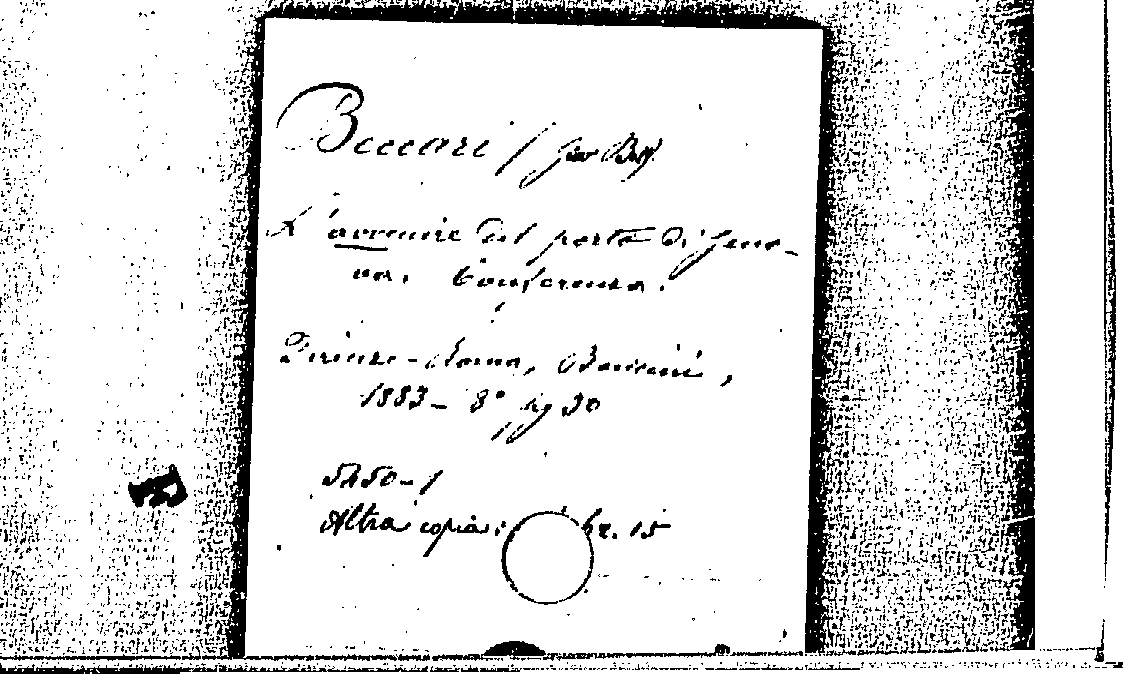 Beccari / Gio Batt
L'avvenire del porto di Geno-
va. Conferenza.
Firenze-Roma, Bencini,
1883 - 8° pag 30
5250-1
Altra copia: 15